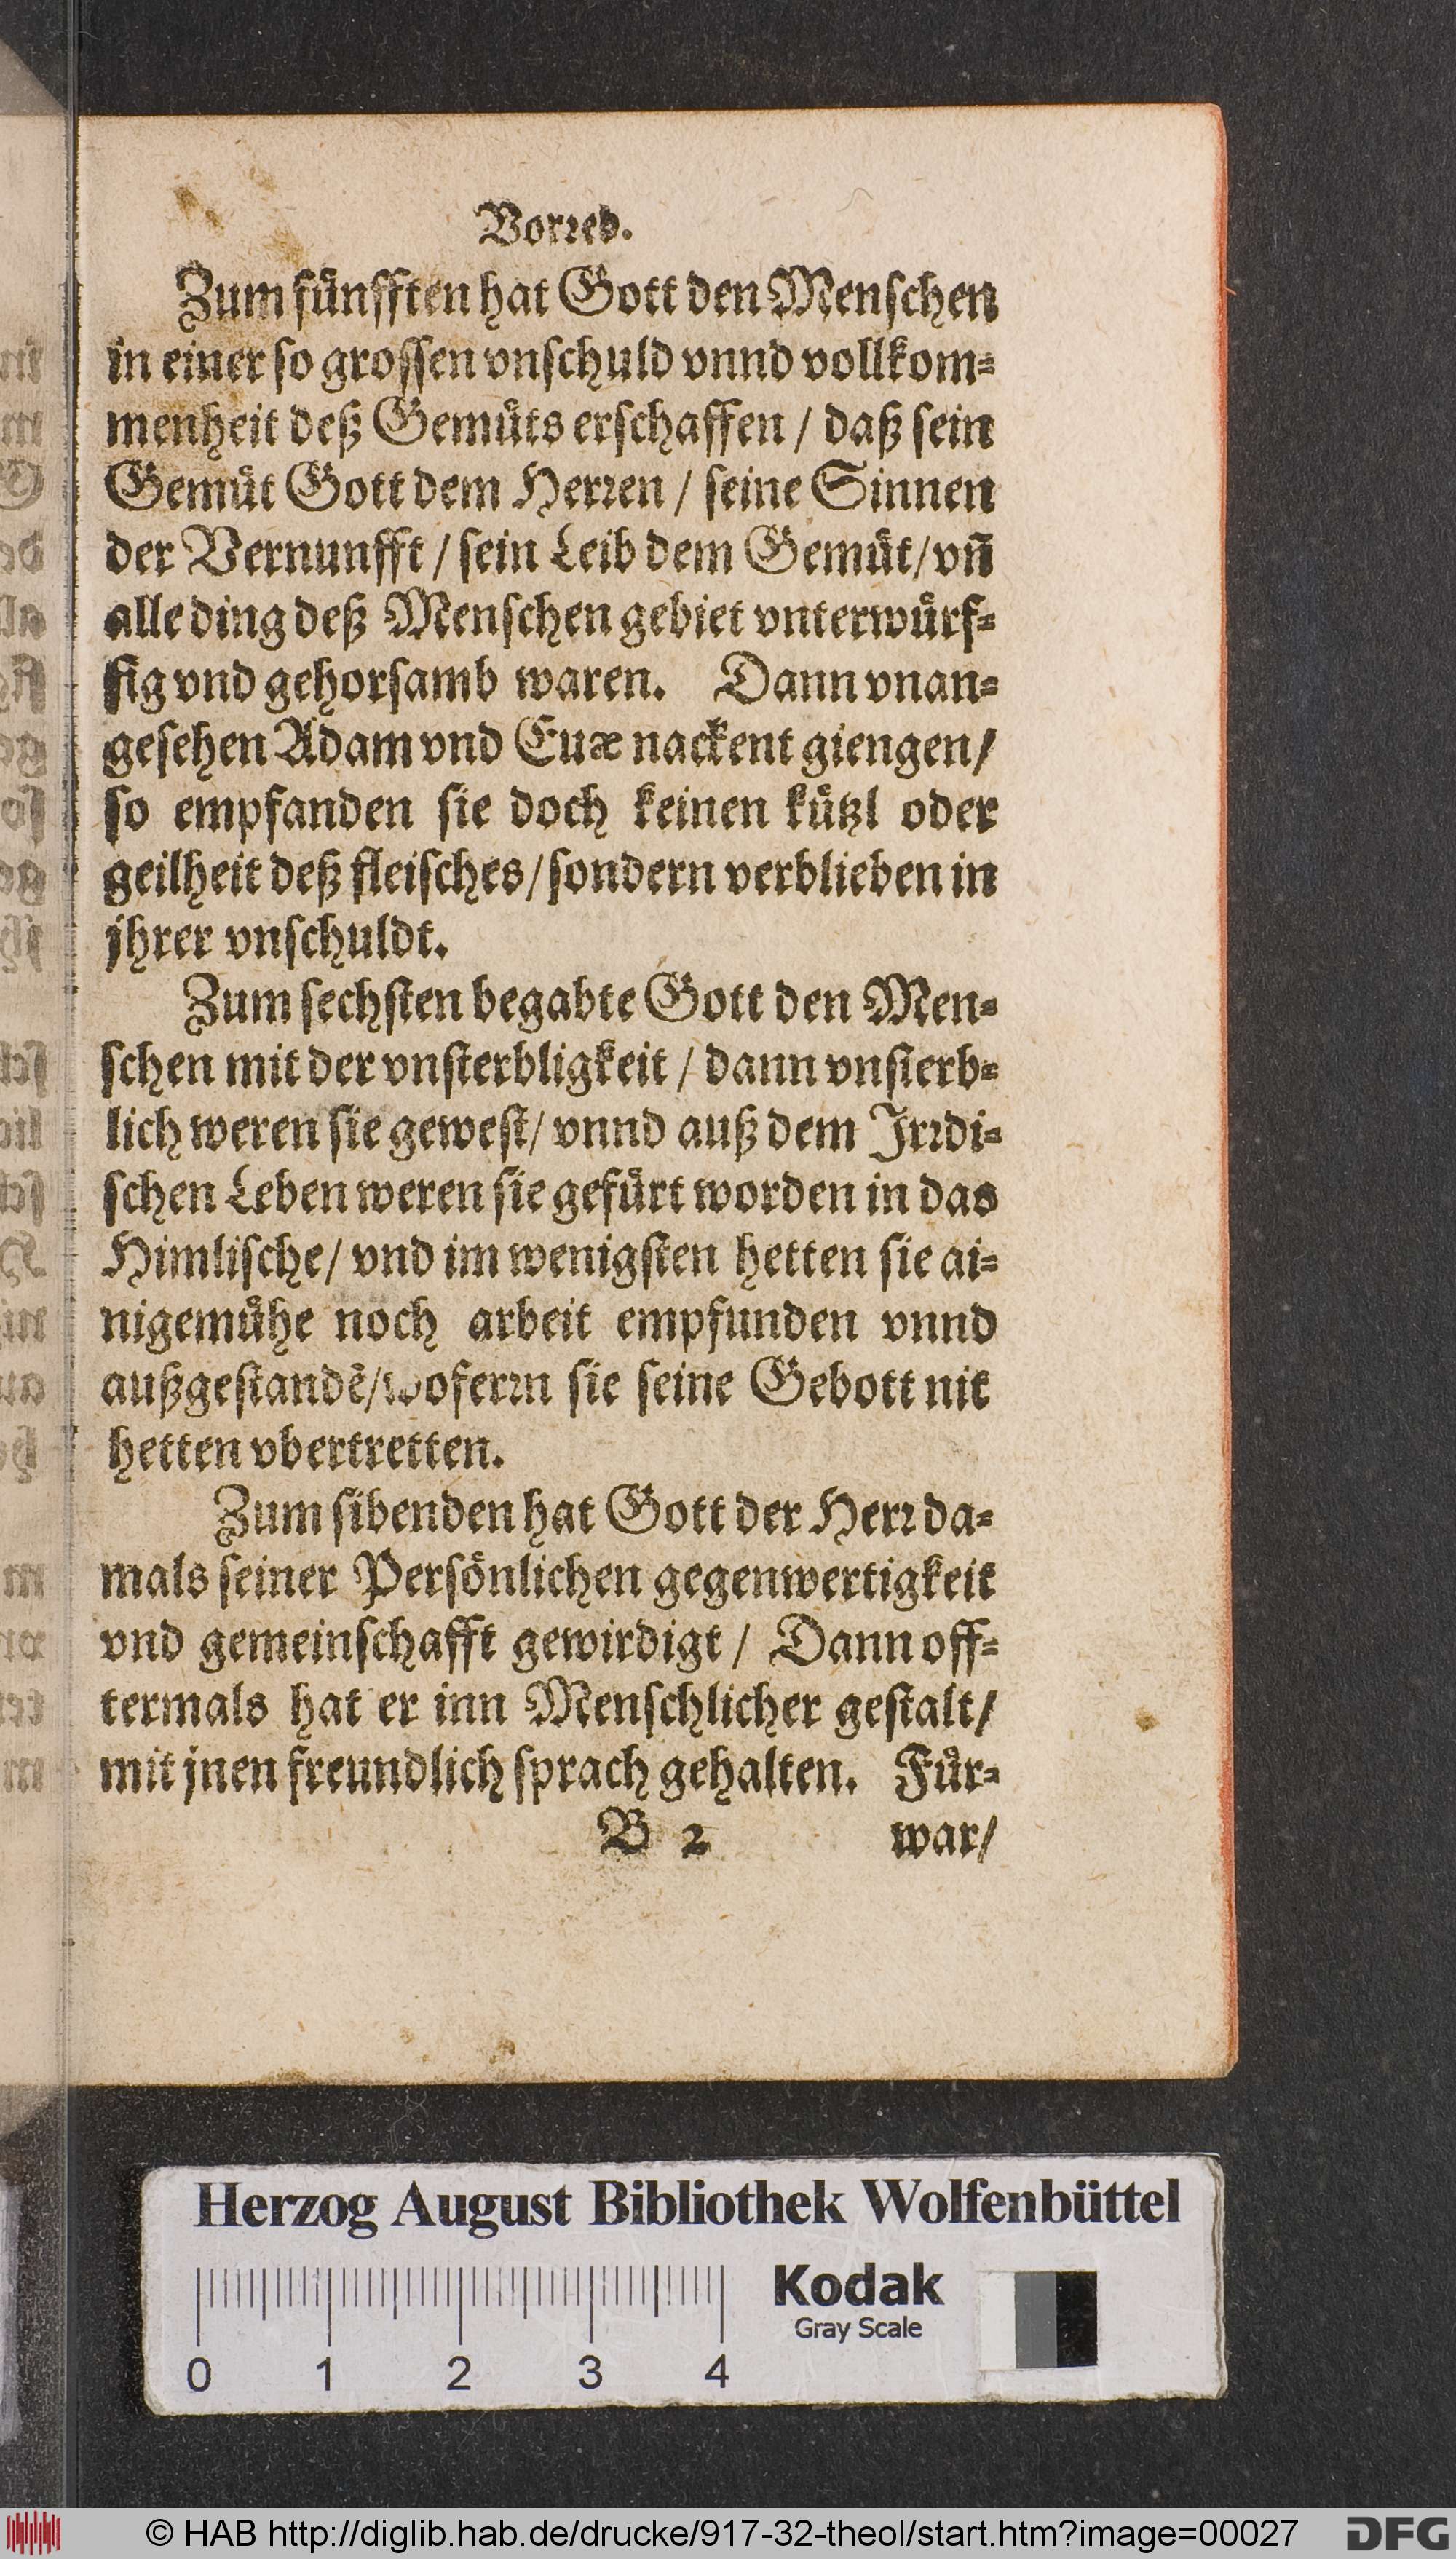 Vorꝛed.
Zum fuͤnfften hat Gott den Menschen
in einer so grossen vnschuld vnnd vollkom⸗
menheit deß Gemuͤts erschaffen / daß sein
Gemuͤt Gott dem Herꝛen / seine Sinnen
der Vernunfft / sein Leib dem Gemuͤt/ vn̄
alle ding deß Menschen gebiet vnterwuͤrf⸗
fig vnd gehorsamb waren. Dann vnan⸗
gesehen Adam vnd Euæ nackent giengen/
so empfanden sie doch keinen kuͤtzl oder
geilheit deß fleisches/ sondern verblieben in
jhrer vnschuldt.
Zum sechsten begabte Gott den Men⸗
schen mit der vnsterbligkeit / dann vnsterb⸗
lich weren sie gewest/ vnnd auß dem Irꝛdi⸗
schen Leben weren sie gefuͤrt worden in das
Himlische/ vnd im wenigsten hetten sie ai⸗
nigemuͤhe noch arbeit empfunden vnnd
außgestandẽ/ woferꝛn sie seine Gebott nit
hetten vbertretten.
Zum sibenden hat Gott der Herꝛ da⸗
mals seiner Persoͤnlichen gegenwertigkeit
vnd gemeinschafft gewirdigt / Dann off⸗
termals hat er inn Menschlicher gestalt/
mit jnen freundlich sprach gehalten. Fuͤr⸗
B 2 war/
Herzog August Bibliothek Wolfenbüttel
Kodak
Gray Scale
0 1 2 3 4
© HAB http://diglib.hab.de/drucke/917-32-theol/start.htm?image=00027
DFG